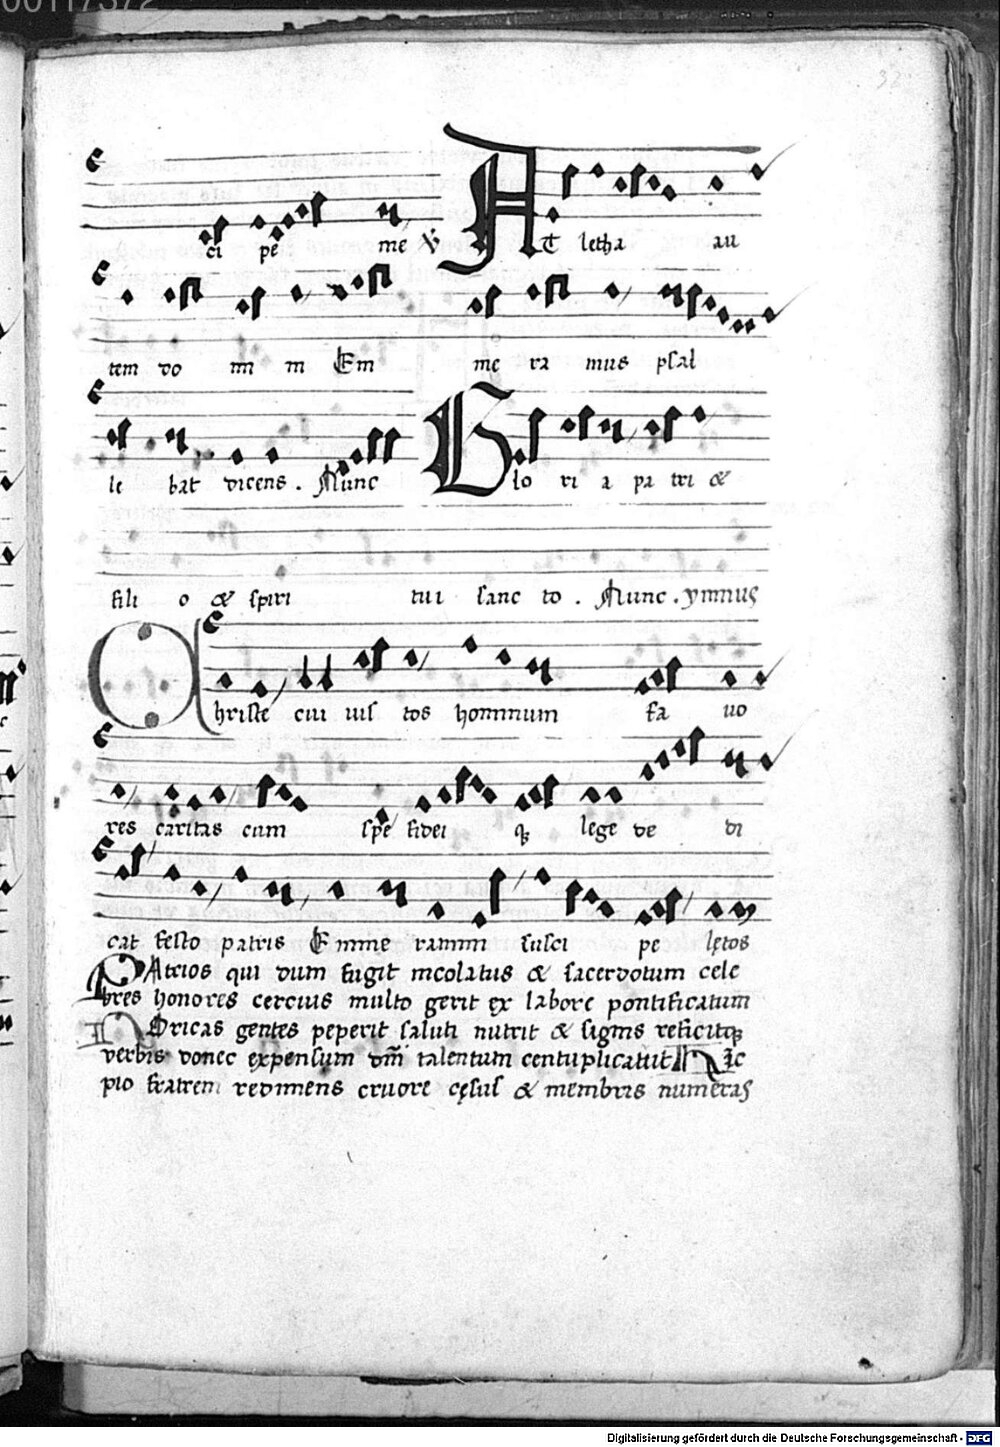 00117372
32
ci pe me V At letha au
tem do mi ni Em me ra mus psal
le bat dicens . Nunc Glo ri a pa tri &
fili o & spiri tui sanc to . Nunc . ymnus
Christe cui vis tos hominum fa vo
res caritas cum spe fidei qꝫ lege de di
cat festo patris Emme rammi susci pe lętos
PAtrios qui dum fugit incolatus & sacerdotum cele
bres honores cercius multo gerit ex labore pontificatum
NOricas gentes peperit saluti nutrit & signis reficitqꝫ
verbis donec expensum dm̄ talentum centuplicavit HIc
pio fratrem redimens cruore cęsus & membris numeras
Digitalisierung gefördert durch die Deutsche Forschungsgemeinschaft - DFG